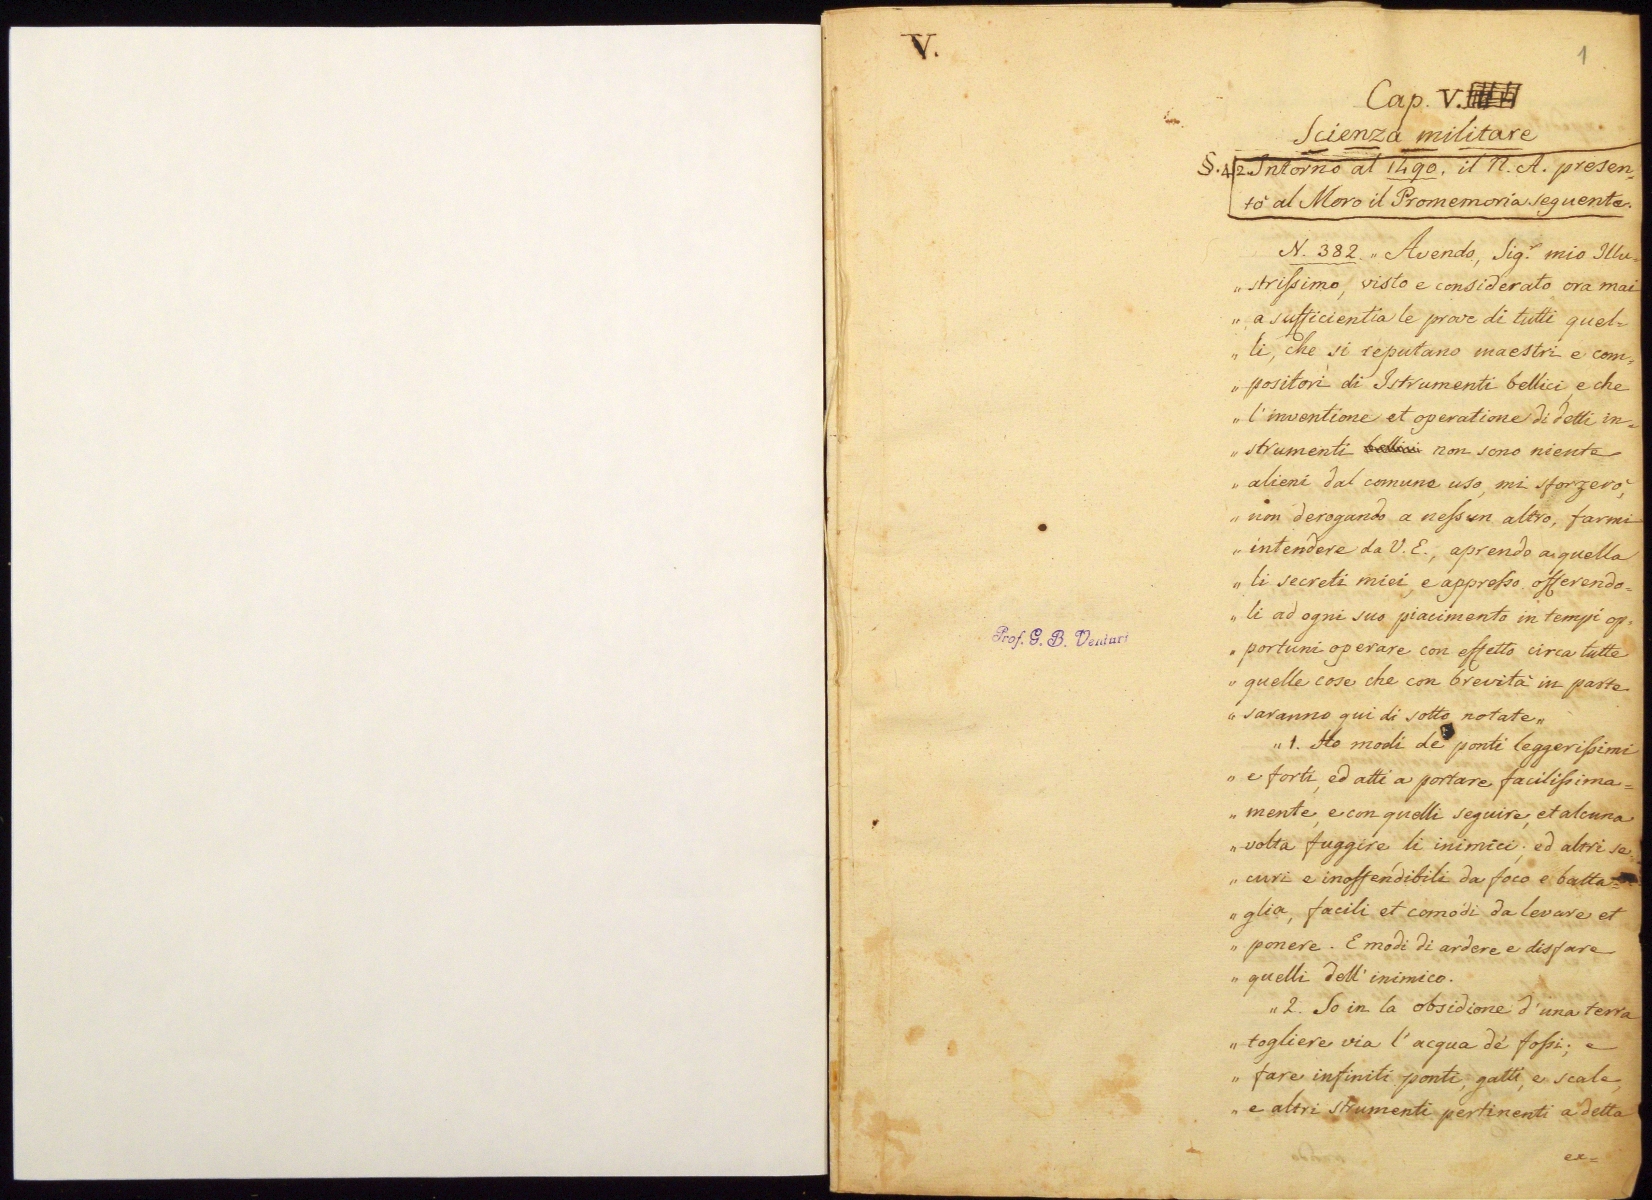 V.
1
Cap. V.
Scienza militare
§. 42 Intorno al 1490. il N. A. presen=
tò al Moro il Promemoria seguente.
N. 382. „ Avendo, Sig.r mio Illu=
„ strissimo, visto e considerato ora mai
„ a sufficientia le prove di tutti quel=
„ li, che si reputano maestri e com=
„ positori di Istrumenti bellici, e che
„ l'inventione et operatione di detti in=
„ strumenti bellici non sono niente
„ alieni dal comune uso, mi sforzerò,
„ non derogando a nessun altro, farmi
„ intendere da V. E., aprendo a quella
„ li secreti miei, e appresso offerendo=
„ li ad ogni suo piacimento in tempi op=
„ portuni operare con effetto circa tutte
„ quelle cose che con brevità in parte
„ saranno qui di sotto notate „
„ 1. Ho modi de' ponti leggerissimi
„ e forti, ed atti a portare facilissima=
„ mente, e con quelli seguire, et alcuna
„ volta fuggire li inimici; ed altri se=
„ curi e inoffendibili da foco e batta=
„ glia, facili et comodi da levare et
„ ponere. E modi di ardere e disfare
„ quelli dell'inimico.
„ 2. So in la obsidione d'una terra
„ togliere via l'acqua de' fossi; e
„ fare infiniti ponti, gatti, e scale,
„ e altri strumenti pertinenti a detta
ex=
Prof. G. B. Venturi